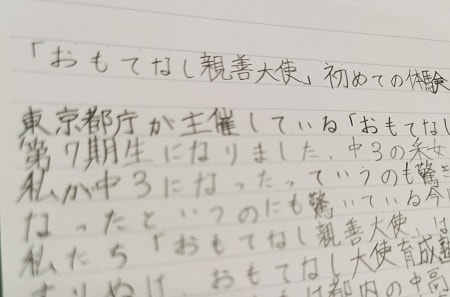 「おもてなし親善大使」初めての体験
東京都庁が主催している「おもてなし
第7期生になりました、中3の采女
私が中3になったっていうのも驚き
なったというのにも驚いている今
私たち「おもてなし親善大使」は
おもてなし大使育成
都内の中高